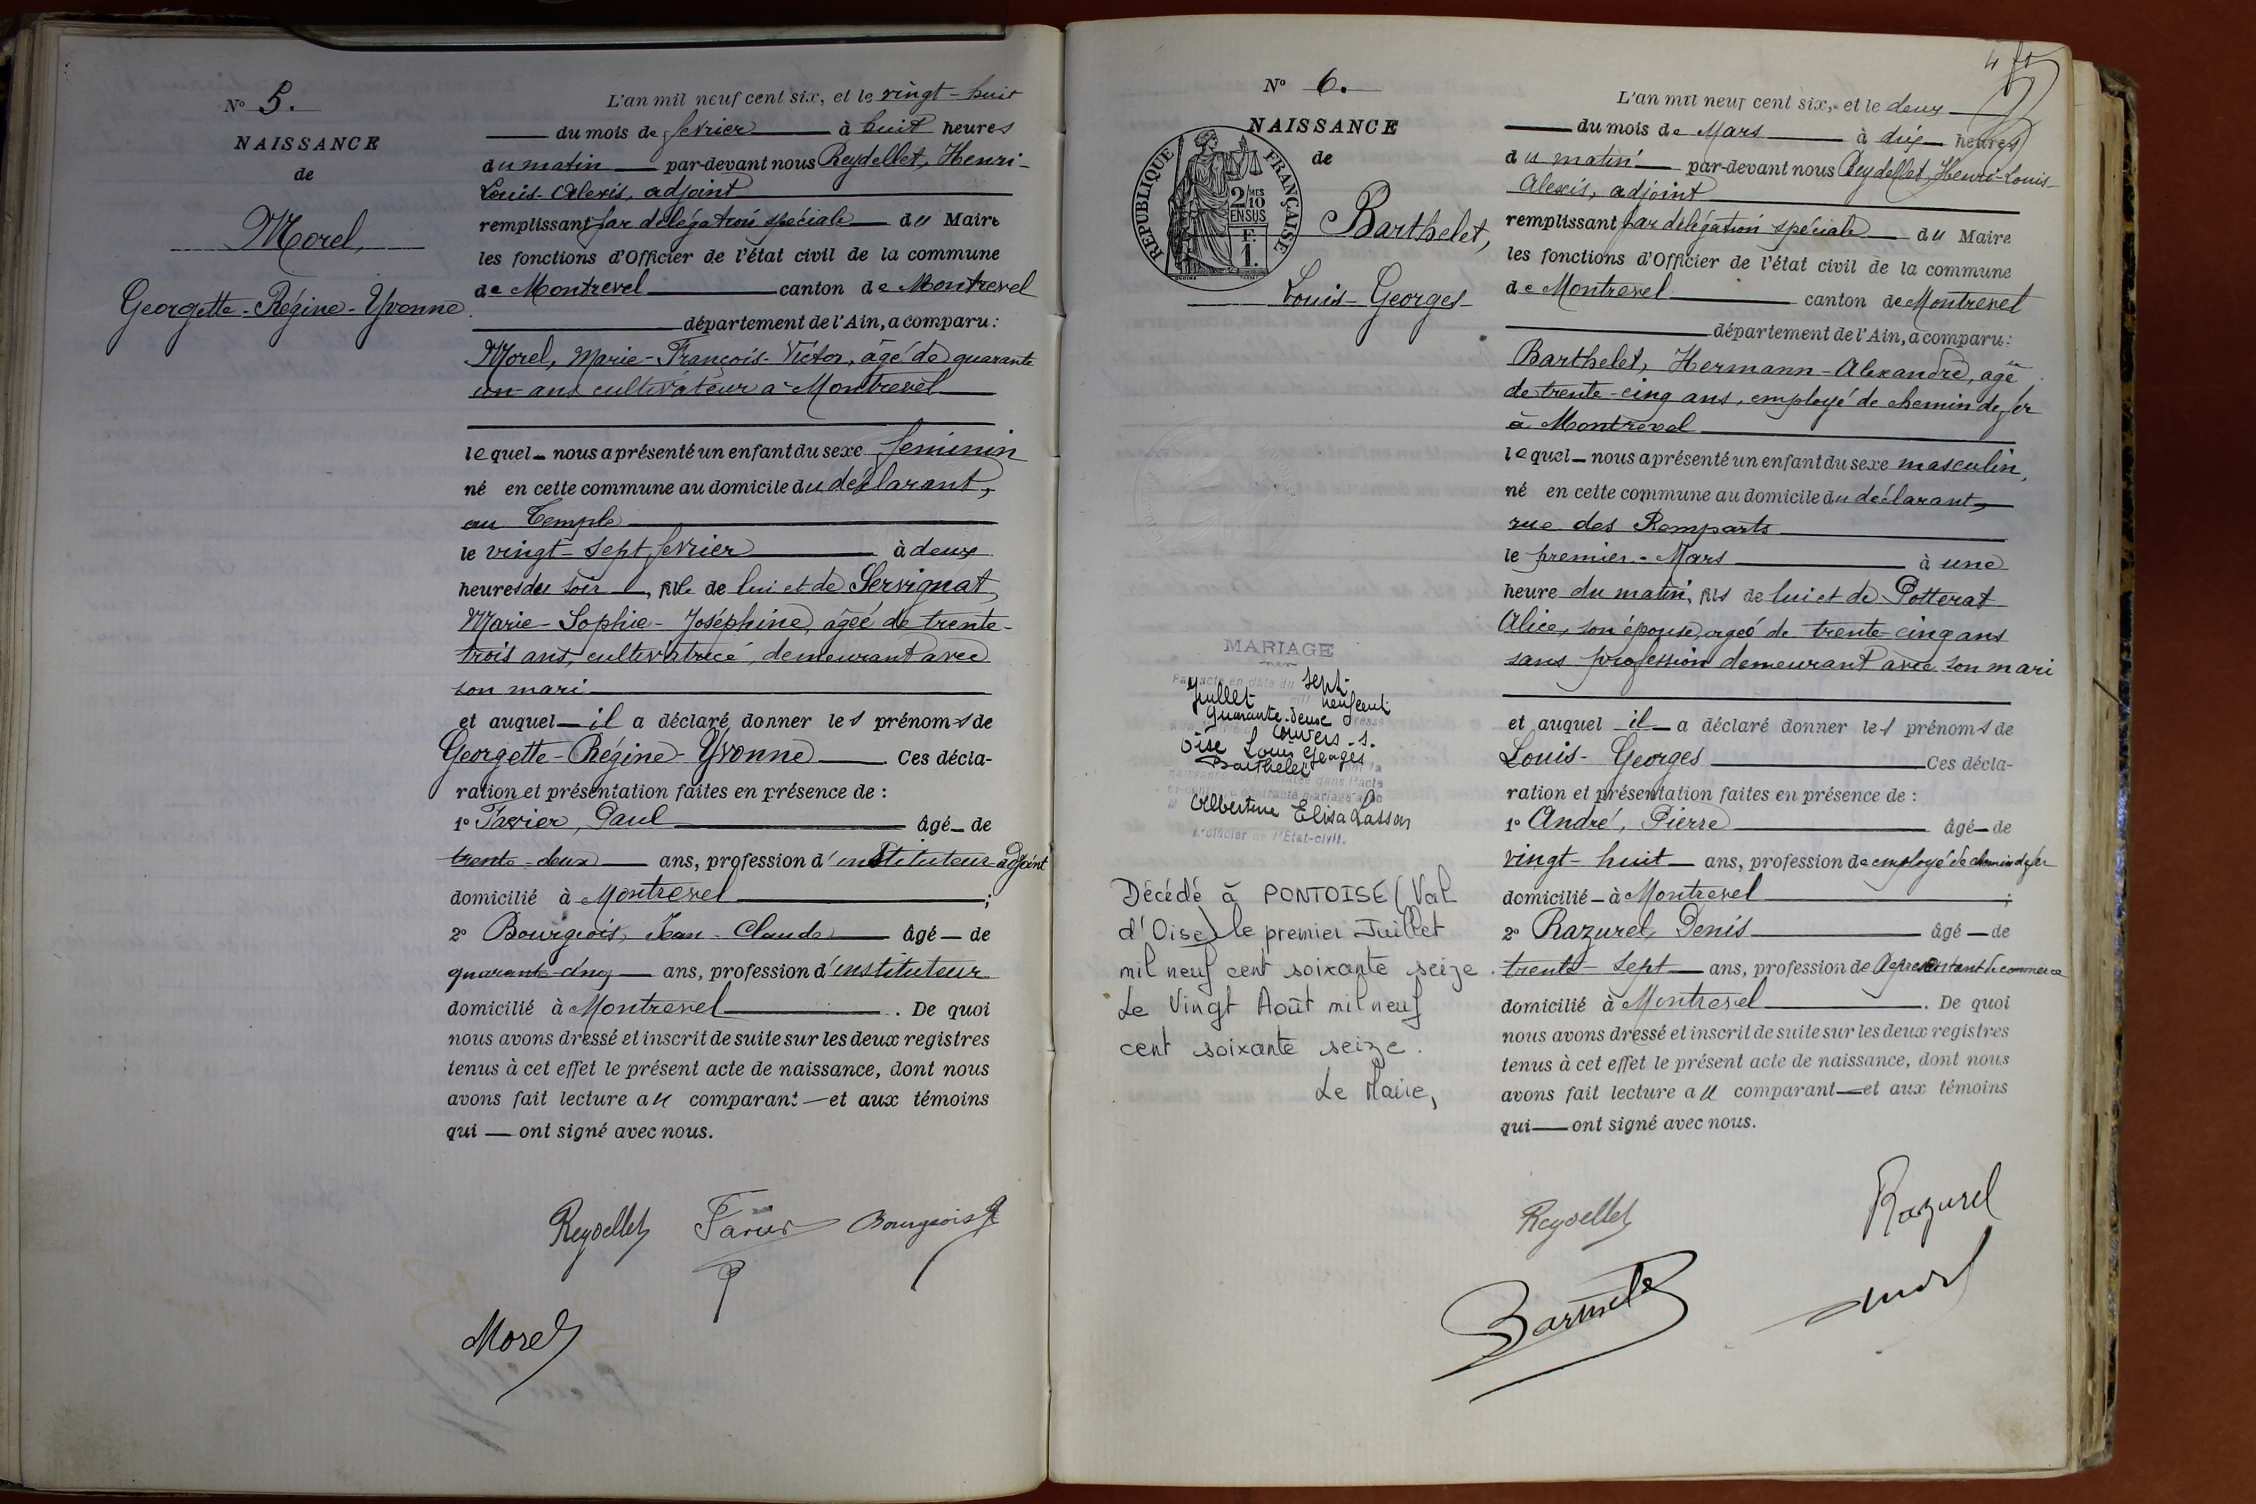 N° 5.
NAISSANCE
de
Morel,
Georgette-Régine-Yvonne
L'an mil neuf cent six, et le vingt-huit
du mois de fevrier à huit heures
du matin par-devant nous Reydellet, Henri-
Louis-Alexis, adjoint
remplissant par délégation spéciale du Maire
les fonctions d'Officier de l'état civil de la commune
de Montrevel canton de Montrevel
département de l'Ain, a comparu:
Morel, Marie-François-Victor, âgé de quarante
un ans cultivateur à Montrevel
lequel nous a présenté un enfant du sexe feminin
né en cette commune au domicile du déclarant,
au Temple
le vingt-sept fevrier à deux
heures du soir, fille de lui et de Servignat,
Marie-Sophie-Joséphine, âgée de trente-
trois ans, cultivatrice, demeurant avec
son mari
et auquel il a déclaré donner les prénoms de
Georgette-Régine-Yvonne Ces décla-
ration et présentation faites en présence de :
1° Favier, Paul âgé de
trente-deux ans, profession d'instituteur adjoint
domicilié à Montrevel ;
2° Bourgeois, Jean-Claude âgé de
quarante-cinq ans, profession d'instituteur
domicilié à Montrevel . De quoi
nous avons dressé et inscrit de suite sur les deux registres
tenus à cet effet le présent acte de naissance, dont nous
avons fait lecture au comparant et aux témoins
qui ont signé avec nous.
Reydellet Favier Bourgeois
Morel
4
N° 6.
NAISSANCE
de
RÉPUBLIQUE FRANÇAISE
2 MES
10
EN SUS
F.
1.
Barthelet,
Louis-Georges
MARIAGE
Par acte en date du sept
Juillet neuf cent
quarante-deux
Auvers-s.
Oise Louis Georges
Barthelet
dans l'acte
Albertine Elisa Lasson
L'Officier de l'État-civil.
Décédé à PONTOISE (Val
d'Oise) le premier Juillet
mil neuf cent soixante seize.
Le Vingt Août mil neuf
cent soixante seize.
Le Maire,
L'an mil neuf cent six, et le deux
du mois de Mars à dix heures
du matin par-devant nous Reydellet, Henri-Louis-
Alexis, adjoint
remplissant par délégation spéciale du Maire
les fonctions d'Officier de l'état civil de la commune
de Montrevel canton de Montrevel
département de l'Ain, a comparu:
Barthelet, Hermann-Alexandre, agé
de trente-cinq ans, employé de chemin de fer
à Montrevel
lequel nous a présenté un enfant du sexe masculin,
né en cette commune au domicile du déclarant,
rue des Remparts
le premier-Mars à une
heure du matin, fils de lui et de Potterat
Alice, son épouse, agée de trente-cinq ans
sans profession demeurant avec son mari
et auquel il a déclaré donner les prénoms de
Louis-Georges Ces décla-
ration et présentation faites en présence de :
1° André, Pierre âgé de
vingt-huit ans, profession de employé de chemin de fer
domicilié à Montrevel ;
2° Razurel, Denis âgé de
trente-sept ans, profession de Représentant de commerce
domicilié à Montrevel . De quoi
nous avons dressé et inscrit de suite sur les deux registres
tenus à cet effet le présent acte de naissance, dont nous
avons fait lecture au comparant et aux témoins
qui ont signé avec nous.
Reydellet Razurel
Barthelet